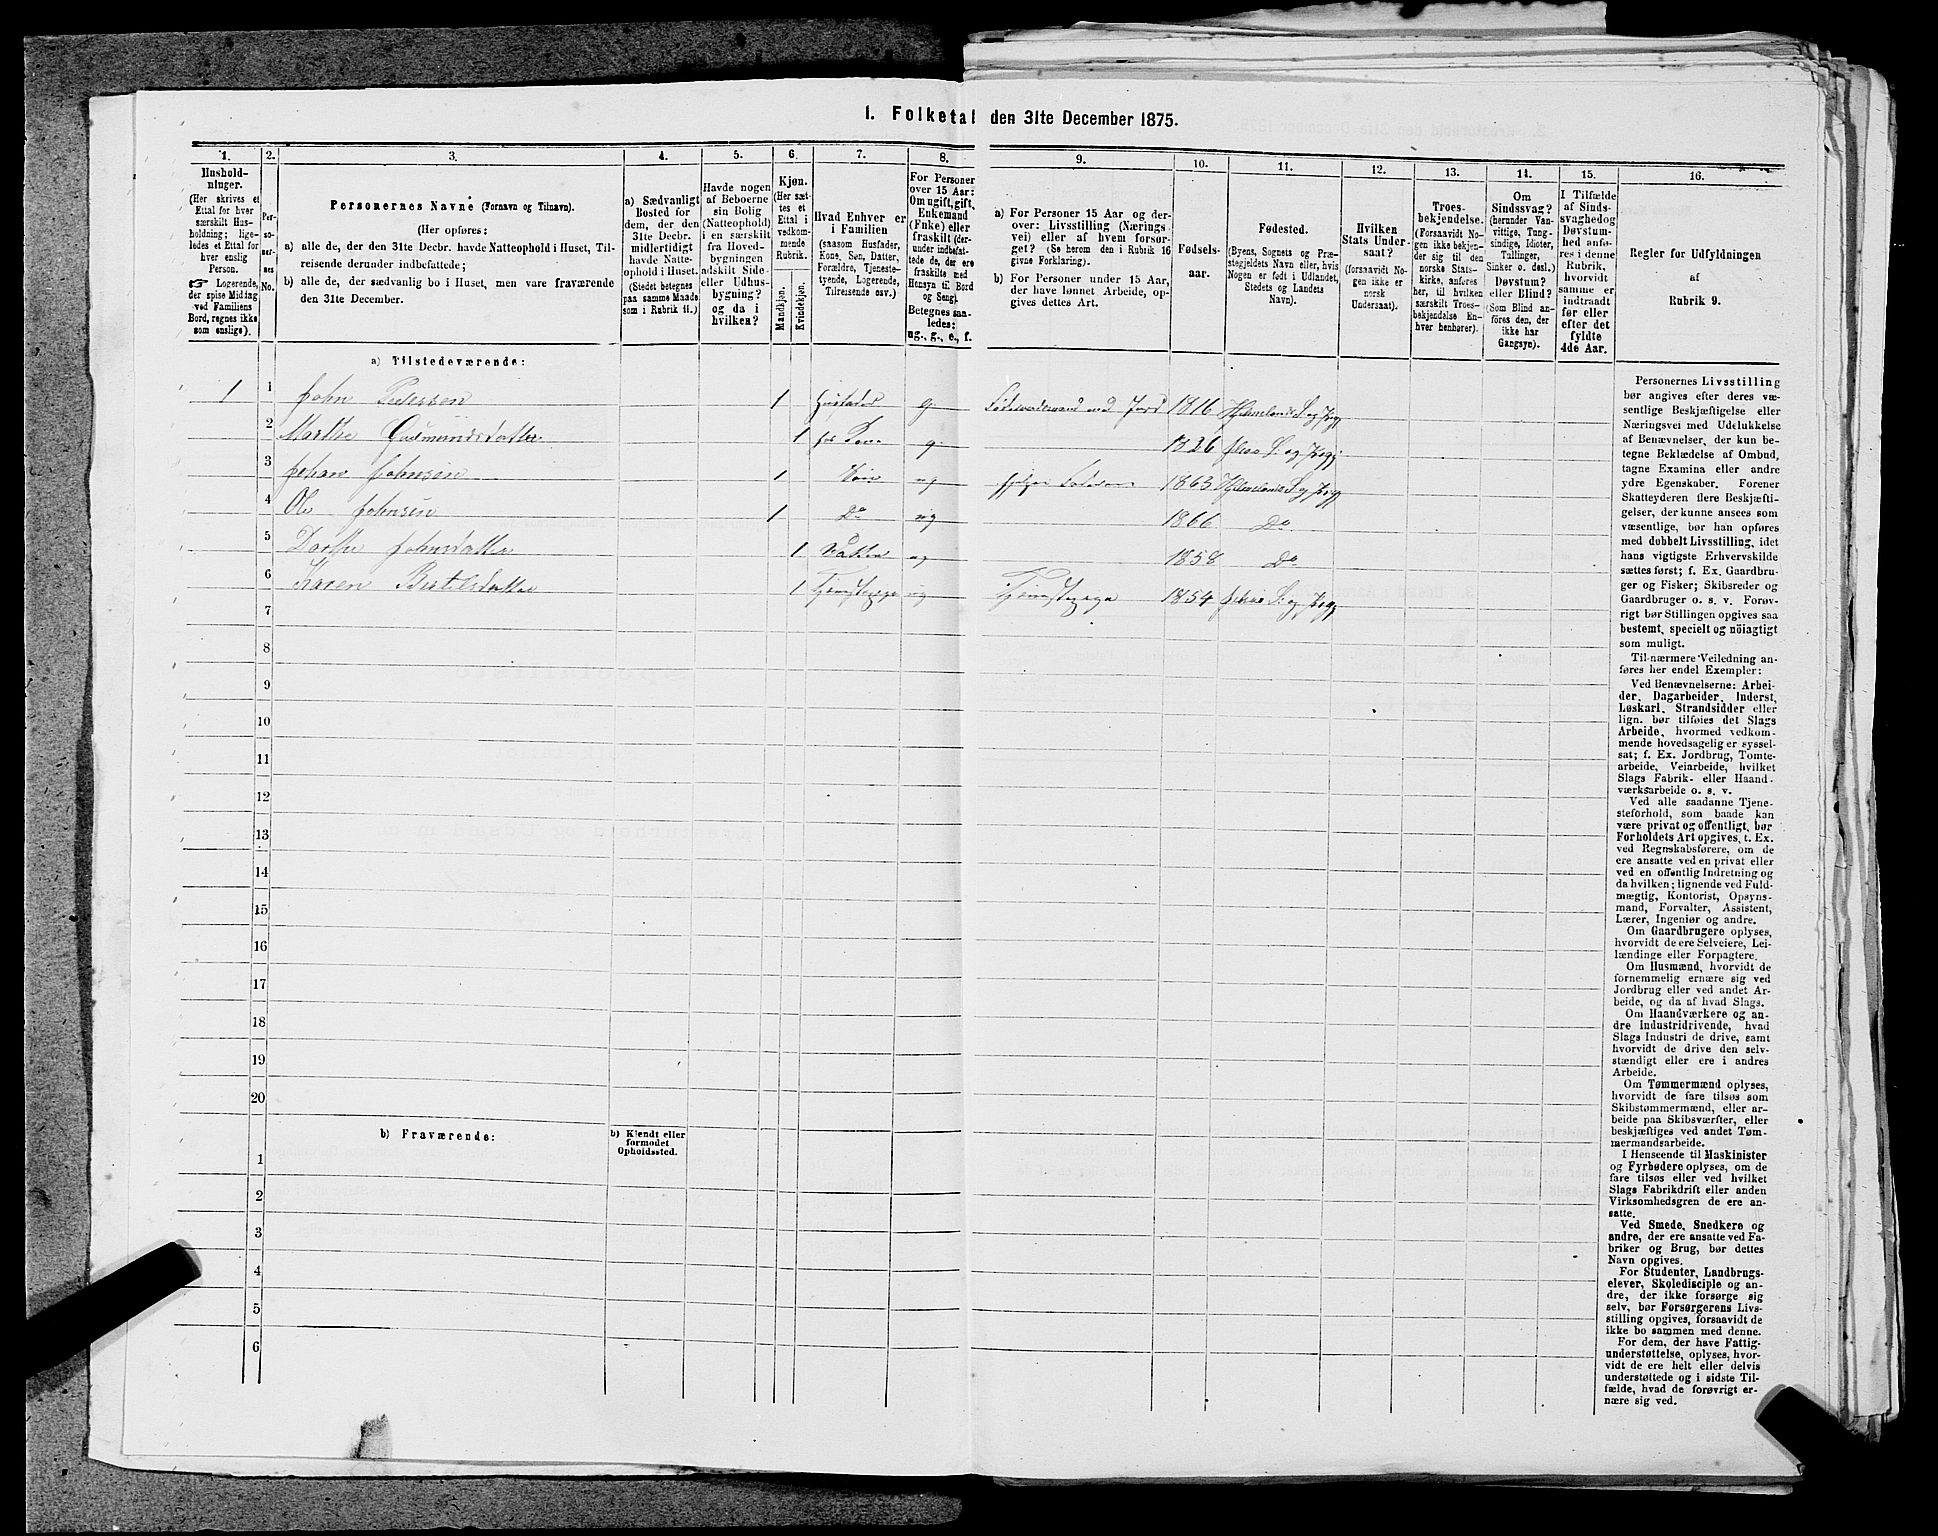 1. Folketal den 31te December 1875.
1. 2. 3. 4. 5. 6. 7. 8. 9. 10. 11. 12. 13. 14. 15. 16.
Hushold-
ninger.
(Her skrives et
Ettal for hver
særskilt Hus-
holdning; lige-
ledes et Ettal for
hver enslig
Person.
☞ Logerende,
der spise Middag
ved Familiens
Bord, regnes ikke
som enslige).
Per-
so-
ner-
nes
No.
Personernes Navne (Fornavn og Tilnavn).
(Her opføres:
a) alle de, der den 31te Decbr. havde Natteophold i Huset, Til-
reisende derunder indbefattede;
b) alle de, der sædvanlig bo i Huset, men vare fraværende
den 31te December.
a) Sædvanligt
Bosted for
dem, der den
31te Decbr.
midlertidigt
havde Natte-
ophold i Huset.
(Stedet betegnes
paa samme Maade
som i Rubrik 11.)
Havde nogen
af Beboerne
sin Bolig
(Natteophold)
i en særskilt
fra Hoved-
bygningen
adskilt Side-
eller Udhus-
bygning?
og da i
hvilken?
Kjøn.
(Her sæt-
tes et
Ettal i
vedkom-
mende
Rubrik.
Mandkjøn.
Kvindekjøn.
Hvad Enhver er
i Familien
(saasom Husfader,
Kone, Søn, Datter,
Forældre, Tjeneste-
tyende, Logerende,
Tilreisende osv.)
For Personer
over 15 Aar:
Om ugift, gift,
Enkemand
(Enke) eller
fraskilt (der-
under indbefat-
tede de, der ere
fraskilte med
Hensyn til Bord
og Seng).
Betegnes saa-
ledes:
ug., g., e., f.
a) For Personer 15 Aar og der-
over: Livsstilling (Nærings
vei) eller af hvem forsør-
get? (Se herom den i Rubrik 16
givne Forklaring).
b) For Personer under 15 Aar,
der have lønnet Arbeide, op-
gives dettes Art.
Fødsels-
aar.
Fødested.
(Byens, Sognets og Præ-
stegjeldets Navn eller, hvis
Nogen er født i Udlandet,
Stedets og Landets
Navn).
Hvilken
Stats Under-
saat?
(forsaavidt No-
gen ikke er
norsk
Undersaat).
Troes-
bekjendelse.
(Forsaavidt No-
gen ikke bekjen-
der sig til den
norske Stats-
kirke, anføres
her, til hvilken
særskilt Troes-
bekjendelse En-
hver henhører).
Om
Sindssvag?
(herunder Van-
vittige, Tung-
sindige, Idioter,
Tullinger,
Sinker o. desl.)
Døvstum?
eller Blind?
(Som Blind an-
føres den, der
ikke har
Gangsyn).
I Tilfælde
af Sinds-
svaghed og
Døvstum-
hed anfø-
res i denne
Rubrik,
hvorvidt
samme er
indtraadt
før eller
efter det
fyldte
4de Aar.
Regler for Udfyldningen
af
Rubrik 9.
a) Tilstedeværende:
1 1 John Pedersen 1 Husfader g. 1816
2 Marthe Gudmundsdatter 1 g. 1826
3 Johan Johnsen 1 Søn ug 1863
4 Ole Johnsen 1 Do ug 1866 Do
5 Dorthe Johnsdatter 1 Datter ug 1858 Do
6 Karen Bertilsdatter 1 Tjenstepige ug Tjenstepige 1854
7
8
9
10
11
12
13
14
15
16
17
18
19
20
b) Fraværende:
b) Kjendt eller
formodet
Opholdssted.
1
2
3
4
5
6
Personernes Livsstilling
bør angives efter deres væ-
sentlige Beskjæftigelse eller
Næringsvei med Udelukkelse
af Benævnelser, der kun be-
tegne Beklædelse af Ombud,
tagne Examina eller andre
ydre Egenskaber. Forener
Skatteyderen flere Beskjæfti-
gelser, der kunne ansees som
væsentlige, bør han opføres
med dobbelt Livsstilling, idet
hans vigtigste Erhvervskilde
sættes først; f. Ex. Gaardbru-
ger og Fisker; Skibsreder og
Gaardbruger o. s. v. Forøv-
rigt bør Stillingen opgives saa
bestemt, specielt og nöiagtigt
som muligt.
Til nærmere Veiledning an-
føres her endel Exempler:
Ved Benævnelserne: Arbei-
der, Dagarbeider, Inderst,
Løskarl, Strandsidder eller
lign. bør tilføies det Slags
Arbeide, hvormed vedkom-
mende hovedsagelig er syssel-
sat; f. Ex. Jordbrug, Tomte-
arbeide, Veiarbeide, hvilket
Slags Fabrik- eller Haand-
værksarbeide o. s. v.
Ved alle saadanne Tjene-
steforhold, som baade kan
være privat og offentligt, bør
Forholdets Art opgives, t. Ex.
ved Regnskabsførere, om de
ere ansatte ved en privat eller
ved en offentlig Indretning og
da hvilken; lignende ved Fuld-
mægtig, Kontorist, Opsyns-
mand, Forvalter, Assistent,
Lærer, Ingeniør og andre.
Om Gaardbrugere oplyses,
hvorvidt de ere Selveiere, Lei-
lændinge eller Forpagtere.
Om Husmænd, hvorvidt de
fornemmelig ernære sig ved
Jordbrug eller ved andet Ar-
beide, og da af hvad Slags.
Om Haandværkere og an-
dre Industridrivende, hvad
Slags Industri de drive, samt
hvorvidt de drive den selv-
stændigt eller ere i andres
Arbeide.
Om Tømmermænd oplyses,
hvorvidt de fare tilsøs som
Skibstømmermænd, eller ar-
beide paa Skibsværfter, eller
beskjæftiges ved andet Tøm-
mermandsarbeide.
I Henseende til Maskinister
og Fyrbødere oplyses, om de
fare tilsøs eller ved hvilket
Slags Fabrikdrift eller anden
Virksomhedsgren de ere an-
satte.
Ved Smede, Snedkere og
andre, der ere ansatte ved Fa-
briker og Brug, bør dettes
Navn opgives.
For Studenter, Landbrugs-
elever, Skoledisciple og an-
dre, der ikke forsørge sig
selv, bør Forsørgerens Livs-
stilling opgives, forsaavidt de
ikke bo sammen med denne.
For dem, der have Fattig-
understøttelse, oplyses, hvor-
vidt de ere helt eller delvis
understøttede og i sidste Til-
fælde, hvad de forøvrigt er-
nære sig ved.